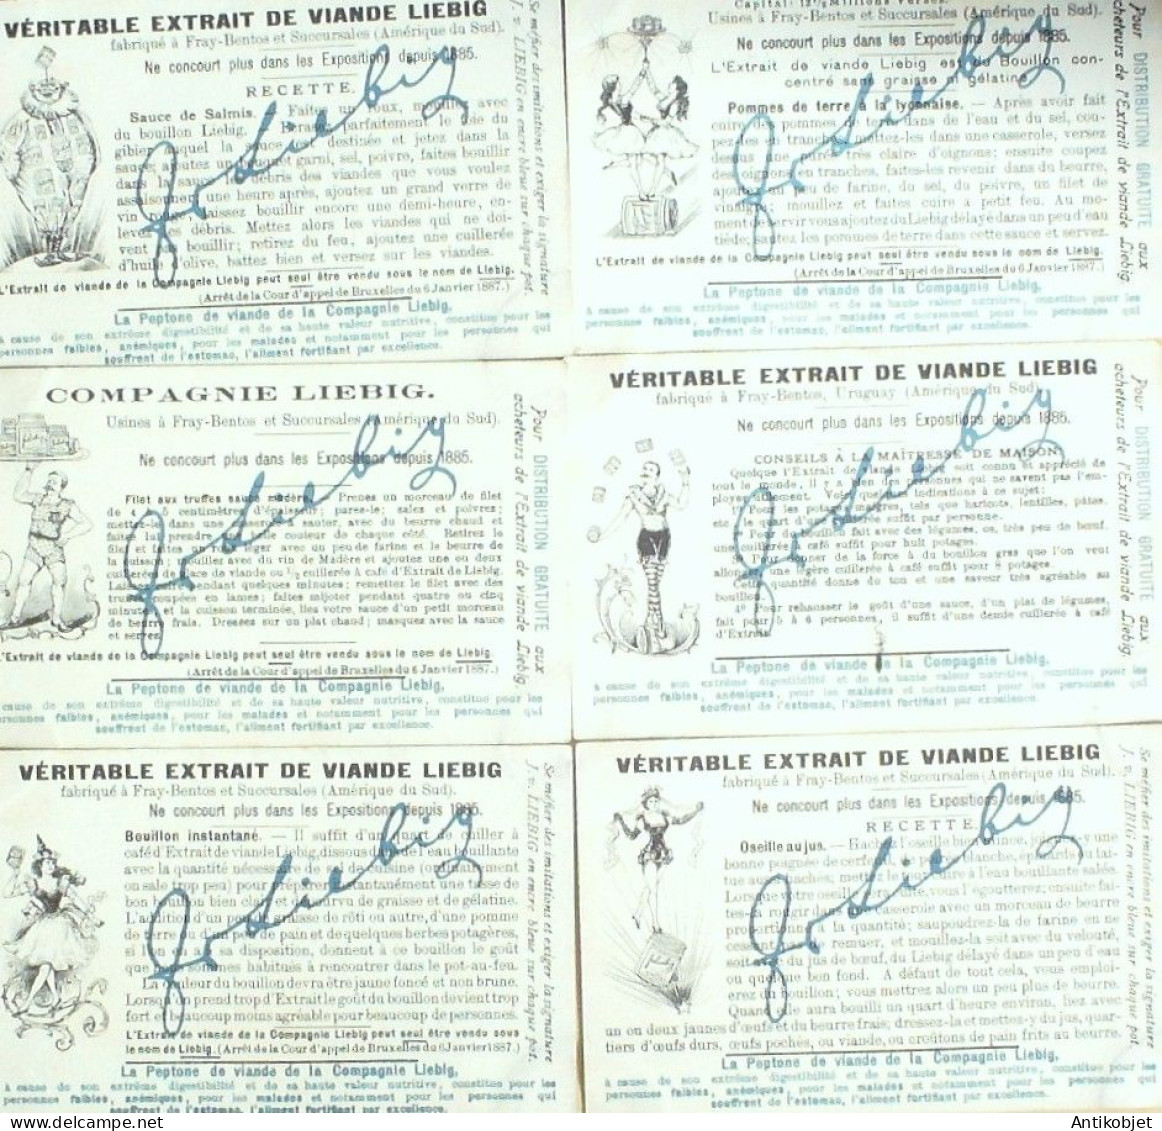 VÉRITABLE EXTRAIT DE VIANDE LIEBIG
fabriqué à Fray-Bentos et Succursales (Amérique du Sud).
Ne concourt plus dans les Expositions depuis 1885.
RECETTE.
Sauce de Salmis. — Faites un roux, mouillez avec
du bouillon Liebig. parfaitement, le foie du
gibier auquel la sauce est destinée et jetez dans la
sauce; ajoutez un bouquet garni, sel, poivre, faites bouillir
dans la sauce les débris des viandes que vous voulez
assaisonner; une heure après, ajoutez un grand verre de
vin laissez bouillir encore une demi-heure, en-
levez les débris. Mettez alors les viandes qui ne doi-
vent pas bouillir; retirez du feu, ajoutez une cuillerée
d'huile d'olive, battez bien et versez sur les viandes.
L'Extrait de viande de la Compagnie Liebig peut seul être vendu sous le nom de Liebig.
(Arrêt de la Cour d'appel de Bruxelles du 6 Janvier 1887.)
La Peptone de viande de la Compagnie Liebig,
à cause de son extrême digestibilité et de sa haute valeur nutritive, constitue pour les
personnes faibles, anémiques, pour les malades et notamment pour les personnes qui
souffrent de l'estomac, l'aliment fortifiant par excellence.
Se méfier des imitations et exiger la signature
J. v. LIEBIG en encre bleue sur chaque pot.
J v Liebig
Usines à Fray-Bentos et Succursales (Amérique du Sud).
Ne concourt plus dans les Expositions depuis 1885.
L'Extrait de viande Liebig est du Bouillon con-
centré sans graisse ni gélatine.
Pommes de terre à la lyonnaise. — Après avoir fait
cuire des pommes de terre dans de l'eau et du sel, cou-
pez-les en tranches, mettez-les dans une casserole, versez
dessus une purée très claire d'oignons; ensuite coupez
des oignons en tranches, faites-les revenir dans du beurre,
ajoutez un peu de farine, du sel, du poivre, un filet de
vinaigre; mouillez et faites cuire à petit feu. Au mo-
ment de servir vous ajoutez du Liebig délayé dans un peu d'eau
tiède; sautez les pommes de terre dans cette sauce et servez.
L'Extrait de viande de la Compagnie Liebig peut seul être vendu sous le nom de Liebig.
(Arrêt de la Cour d'appel de Bruxelles du 6 Janvier 1887.)
La Peptone de viande de la Compagnie Liebig,
à cause de son extrême digestibilité et de sa haute valeur nutritive, constitue pour les
personnes faibles, anémiques, pour les malades et notamment pour les personnes qui
souffrent de l'estomac, l'aliment fortifiant par excellence.
Pour DISTRIBUTION GRATUITE aux
acheteurs de l'Extrait de viande Liebig.
J v Liebig
COMPAGNIE LIEBIG.
Usines à Fray-Bentos et Succursales (Amérique du Sud).
Ne concourt plus dans les Expositions depuis 1885.
Filet aux truffes sauce madère. — Prenez un morceau de filet
de 4 à 5 centimètres d'épaisseur; parez-le; salez et poivrez;
mettez-le dans une casserole à sauter, avec du beurre chaud et
faites lui prendre une belle couleur de chaque côté. Retirez le
filet et faites un roux léger avec un peu de farine et le beurre de
la cuisson; mouillez avec du vin de Madère et ajoutez une à deux
cuillerées de glace de viande ou ½ cuillerée à café d'Extrait de Liebig.
Laissez cuire pendant quelques minutes; remettez le filet avec des
truffes coupées en lames; faites mijoter pendant quatre ou cinq
minutes et la cuisson terminée, liez votre sauce d'un petit morceau
de beurre frais. Dressez sur un plat chaud; masquez avec la sauce
et servez.
L'Extrait de viande de la Compagnie Liebig peut seul être vendu sous le nom de Liebig.
(Arrêt de la Cour d'appel de Bruxelles du 6 Janvier 1887.)
La Peptone de viande de la Compagnie Liebig,
cause de son extrême digestibilité et de sa haute valeur nutritive, constitue pour les
personnes faibles, anémiques, pour les malades et notamment pour les personnes qui
souffrent de l'estomac, l'aliment fortifiant par excellence.
Pour DISTRIBUTION GRATUITE aux
acheteurs de l'Extrait de viande Liebig
J v Liebig
VÉRITABLE EXTRAIT DE VIANDE LIEBIG
fabriqué à Fray-Bentos, Uruguay (Amérique du Sud).
Ne concourt plus dans les Expositions depuis 1885.
CONSEILS À LA MAÎTRESSE DE MAISON.
Quoique l'Extrait de viande Liebig soit connu et apprécié de
tout le monde, il y a bien des personnes qui ne savent pas l'em-
ployer utilement. Voici quelques indications à ce sujet:
1º Pour les potages maigres, tels que haricots, lentilles, pâtes,
etc., le quart d'une cuillerée suffit par personne.
2º Pour du bouillon fait avec des légumes, os, très peu de bœuf,
une cuillerée à café suffit pour huit potages.
3º Pour donner de la force à du bouillon gras que l'on veut
allonger, une légère cuillerée à café suffit pour 8 potages.
Cette quantité donne du ton et une saveur très agréable au
bouillon.
4º Pour rehausser le goût d'une sauce, d'un plat de légumes,
fait pour 5 à 6 personnes, il suffit d'une demie cuillerée à café
d'Extrait.
La Peptone de viande de la Compagnie Liebig,
à cause de son extrême digestibilité et de sa haute valeur nutritive, constitue pour les
personnes faibles, anémiques, pour les malades et notamment pour les personnes qui
souffrent de l'estomac, l'aliment fortifiant par excellence.
Pour DISTRIBUTION GRATUITE aux
acheteurs de l'Extrait de viande Liebig
J v Liebig
VÉRITABLE EXTRAIT DE VIANDE LIEBIG
fabriqué à Fray-Bentos et Succursales (Amérique du Sud).
Ne concourt plus dans les Expositions depuis 1885.
Bouillon instantané. — Il suffit d'un quart de cuiller à
café d'Extrait de viande Liebig, dissous dans de l'eau bouillante
avec la quantité nécessaire de sel de cuisine (ordinairement
on sale trop peu) pour préparer instantanément une tasse de
bon bouillon bien clair et dépourvu de graisse et de gélatine.
L'addition d'un peu de graisse de rôti ou autre, d'une pomme
de terre ou d'un peu de pain et de quelques herbes potagères,
si l'on en a à sa disposition, donnent à ce bouillon le goût
que nous sommes habitués à rencontrer dans le pot-au-feu.
La couleur du bouillon devra être jaune foncé et non brune.
Lorsqu'on prend trop d'Extrait le goût du bouillon devient trop
fort et beaucoup moins agréable pour beaucoup de personnes.
L'Extrait de viande de la Compagnie Liebig peut seul être vendu sous
le nom de Liebig. (Arrêt de la Cour d'appel de Bruxelles du 6 Janvier 1887.)
La Peptone de viande de la Compagnie Liebig,
à cause de son extrême digestibilité et de sa haute valeur nutritive, constitue pour les
personnes faibles, anémiques, pour les malades et notamment pour les personnes qui
souffrent de l'estomac, l'aliment fortifiant par excellence.
Se méfier des imitations et exiger la signature
J. v. LIEBIG en encre bleue sur chaque pot.
J v Liebig
VÉRITABLE EXTRAIT DE VIANDE LIEBIG
fabriqué à Fray-Bentos et Succursales (Amérique du Sud).
Ne concourt plus dans les Expositions depuis 1885.
RECETTE.
Oseille au jus. — Hachez l'oseille bien mince, joignez-y une
bonne poignée de cerfeuil, de poirée blanche, épinards ou lai-
tue aussi hachés; mettez le tout cuire à l'eau bouillante salée.
Lorsque votre oseille sera cuite, vous l'égoutterez; ensuite fai-
tes-la roussir dans une casserole avec un morceau de beurre
proportionné à la quantité; saupoudrez-la de farine en ne
cessant pas de remuer, et mouillez-la soit avec du velouté,
soit avec du jus de bœuf, du Liebig délayé dans un peu d'eau
ou quelque bon fond. A défaut de tout cela, vous emploi-
erez du bouillon; vous mettrez alors un peu plus de beurre.
Quand elle aura bouilli un quart d'heure environ, liez avec
un ou deux jaunes d'œufs et du beurre frais; dressez-la et mettez-y du jus, quar-
tiers d'œufs durs, œufs pochés, ou viande, ou croûtons de pain frits au beurre.
La Peptone de viande de la Compagnie Liebig,
à cause de son extrême digestibilité et de sa haute valeur nutritive, constitue pour les
personnes faibles, anémiques, pour les malades et notamment pour les personnes qui
souffrent de l'estomac, l'aliment fortifiant par excellence.
Se méfier des imitations et exiger la signature
J. v. LIEBIG en encre bleue sur chaque pot.
J v Liebig
Antikobjet